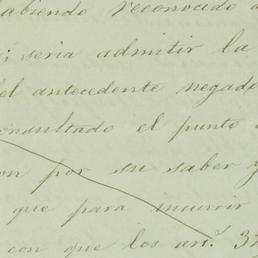 abiendo reconocido
i seria admitir la
el antecedente negado
consultado el punto
on por su saber y
que para incurrir
con que los art.s 37